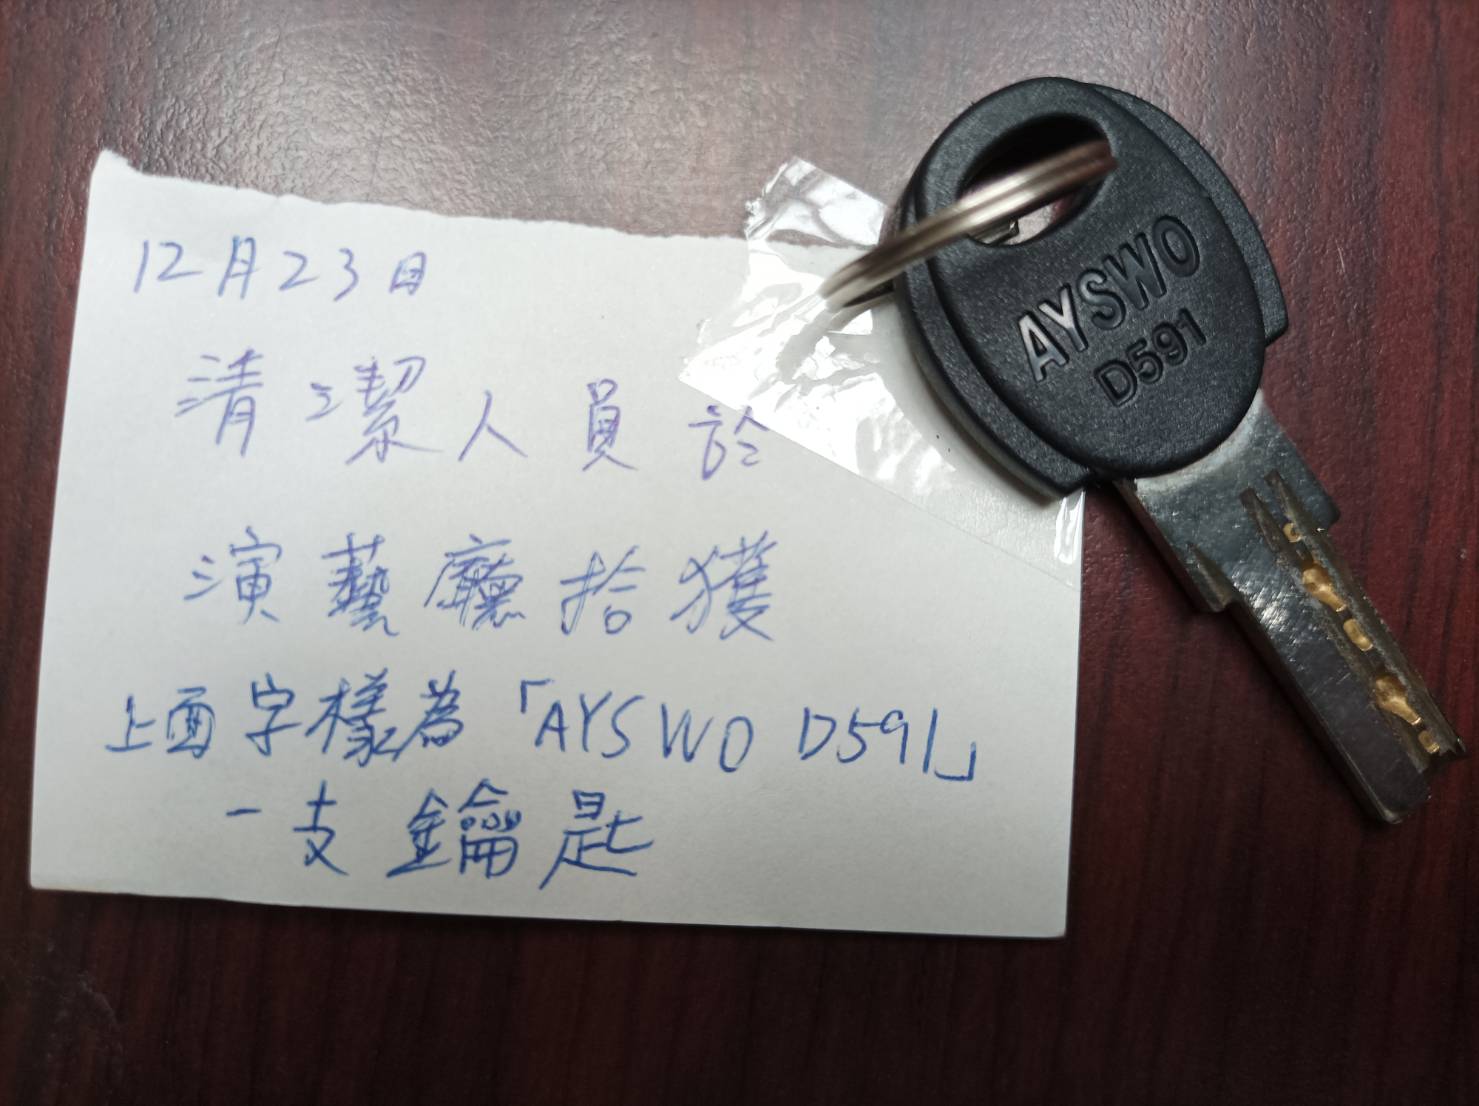 12月23日
清潔人員於
演藝廳拾獲
上面字樣為「AYSWO D591」
一支鑰匙
AYSWO
D591